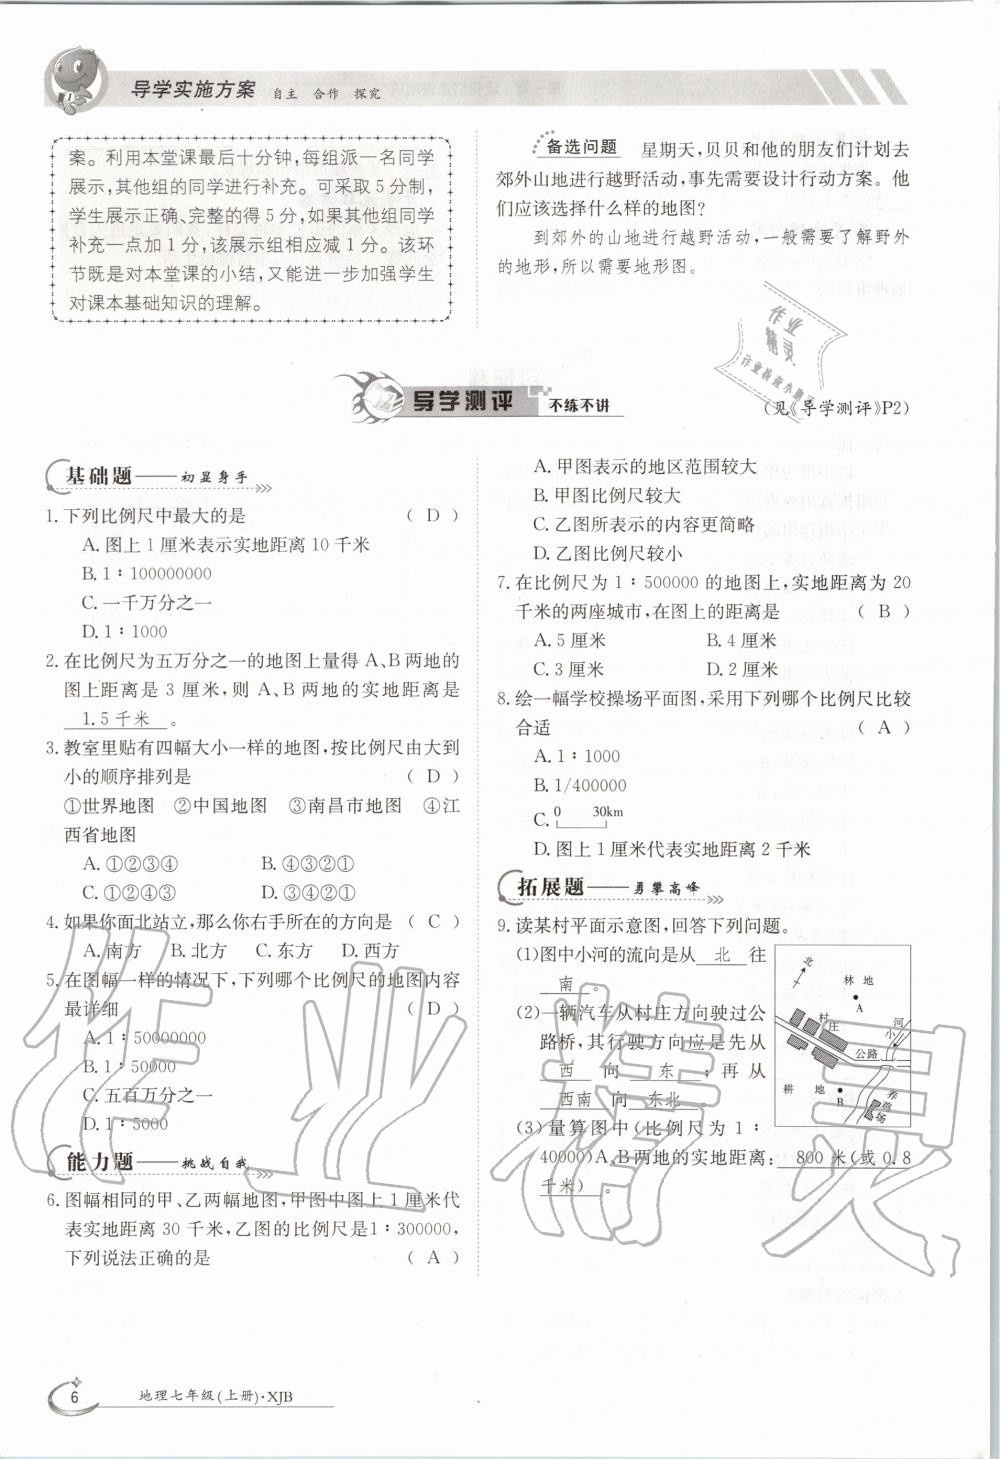 导学实施方案 自主 合作 探究
案。利用本堂课最后十分钟,每组派一名同学
展示,其他组的同学进行补充。可采取5分制,
学生展示正确、完整的得5分,如果其他组同学
补充一点加1分,该展示组相应减1分。该环
节既是对本堂课的小结,又能进一步加强学生
对课本基础知识的理解。
备选问题 星期天,贝贝和他的朋友们计划去
郊外山地进行越野活动,事先需要设计行动方案。他
们应该选择什么样的地图?
到郊外的山地进行越野活动,一般需要了解野外
的地形,所以需要地形图。
导学测评 不练不讲
(见《导学测评》P2)
基础题——初显身手
1.下列比例尺中最大的是 ( D )
A.图上1厘米表示实地距离10千米
B.1∶100000000
C.一千万分之一
D.1∶1000
2.在比例尺为五万分之一的地图上量得A、B两地的
图上距离是3厘米,则A、B两地的实地距离是
1.5千米 。
3.教室里贴有四幅大小一样的地图,按比例尺由大到
小的顺序排列是 ( D )
①世界地图 ②中国地图 ③南昌市地图 ④江
西省地图
A.①②③④ B.④③②①
C.①②④③ D.③④②①
4.如果你面北站立,那么你右手所在的方向是 ( C )
A.南方 B.北方 C.东方 D.西方
5.在图幅一样的情况下,下列哪个比例尺的地图内容
最详细 ( D )
A.1∶50000000
B.1∶50000
C.五百万分之一
D.1∶5000
能力题——挑战自我
6.图幅相同的甲、乙两幅地图,甲图中图上1厘米代
表实地距离30千米,乙图的比例尺是1∶300000,
下列说法正确的是 ( A )
A.甲图表示的地区范围较大
B.甲图比例尺较大
C.乙图所表示的内容更简略
D.乙图比例尺较小
7.在比例尺为1∶500000的地图上,实地距离为20
千米的两座城市,在图上的距离是 ( B )
A.5厘米 B.4厘米
C.3厘米 D.2厘米
8.绘一幅学校操场平面图,采用下列哪个比例尺比较
合适 ( A )
A.1∶1000
B.1/400000
C. 0 30km
D.图上1厘米代表实地距离2千米
拓展题——勇攀高峰
9.读某村平面示意图,回答下列问题。
(1)图中小河的流向是从 北 往
南 。
(2)一辆汽车从村庄方向驶过公
路桥,其行驶方向应是先从
西 向 东 ;再从
西南 向 东北 。
(3)量算图中(比例尺为1∶
40000)A、B两地的实地距离: 800米(或0.8
千米) 。
北
林 地
A
村
庄
小
河
公路
耕 地
B
养
鸡
场
6 地理七年级(上册)·XJB
作业
精灵
作业精灵